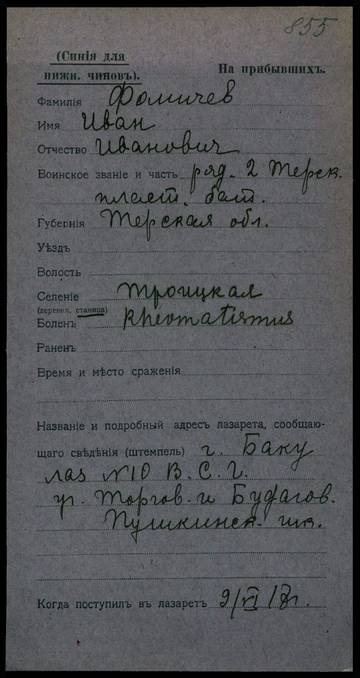 855
(Синія для
нижн. чиновъ).
На прибывшихъ.
Фамилія Фомичев
Имя Иван
Отчество Иванович
Воинское званіе и часть ряд. 2 Терск.
пласт. бат.
Губернія Терская обл.
Уѣздъ
Волость
Селеніе Троицкая
(деревня, станица)
Боленъ Rheomatismus
Раненъ
Время и мѣсто сраженія
Названіе и подробный адресъ лазарета, сообщаю-
щаго свѣдѣнія (штемпель) г. Баку
лаз №10 В. С. Г.
уг. Торгов. и Будагов.
Пушкинск. шк.
Когда поступилъ въ лазаретъ 9/VI 17г.